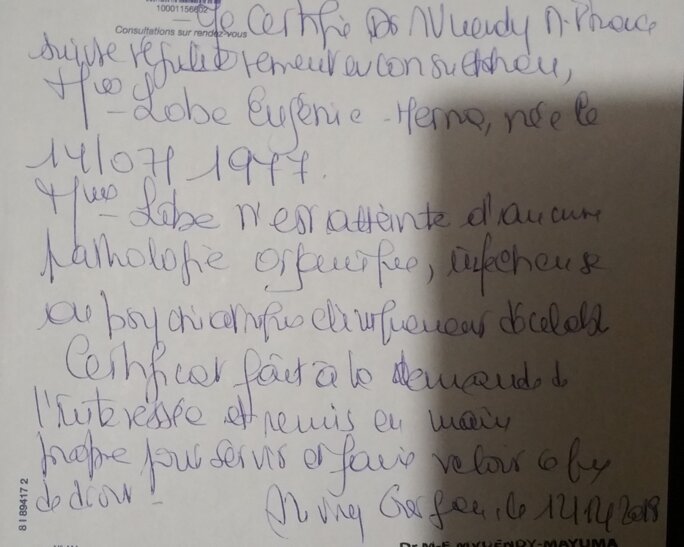 10001156602
Consultations sur rendez-vous
Je certifie Dr
suivre régulièrement en consultation,
Mme Lobe Eugénie - née le
14/07/1977.
Mme Lobe n'est atteinte d'aucune
pathologie organique, infectieuse
ou psychiatrique cliniquement décelable
Certificat fait à la demande de
l'intéressée et remis en main
propre pour servir et faire valoir
de droit
le 12/12/2018
8189417 2
Dr M-F MVUENDY-MAYUMA